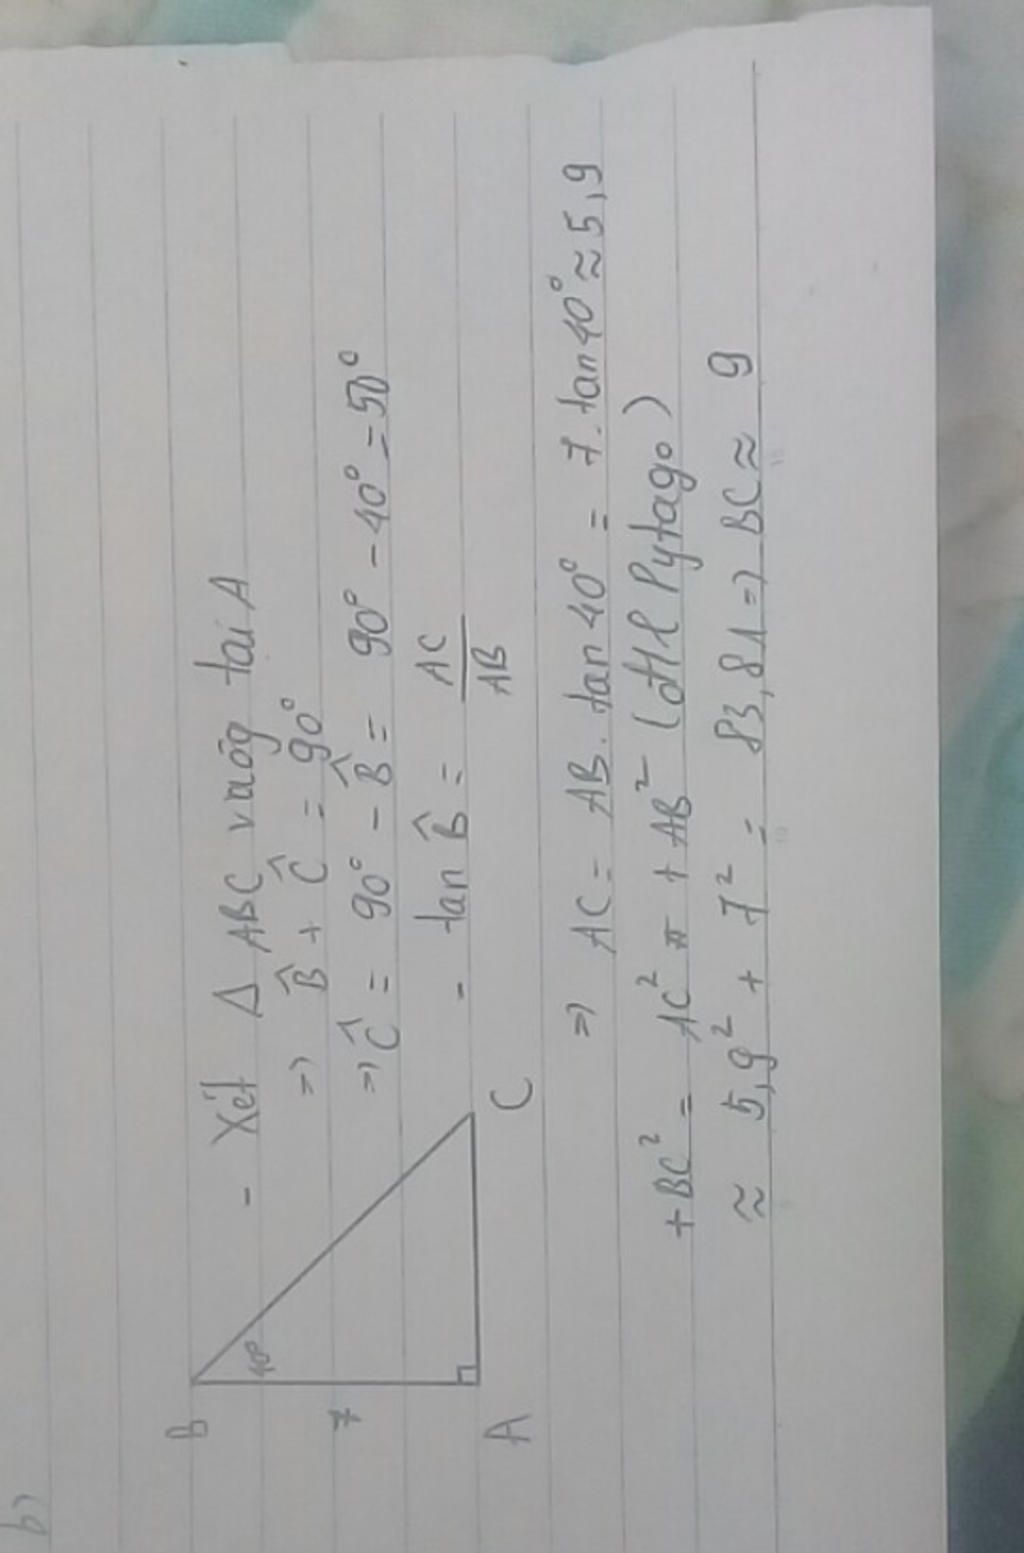 b)
B
- Xét Δ ABC vuôg tại A
40°
=) B̂ + Ĉ = 90°
7
=) Ĉ = 90° - B̂ = 90° - 40° = 50°
- tan B̂ = AC/AB
A C
=) AC = AB. tan 40° = 7. tan 40° ≈ 5,9
+ BC² = AC² + AB² (ĐHL Pytago)
≈ 5,9² + 7² = 83,81 =) BC ≈ 9